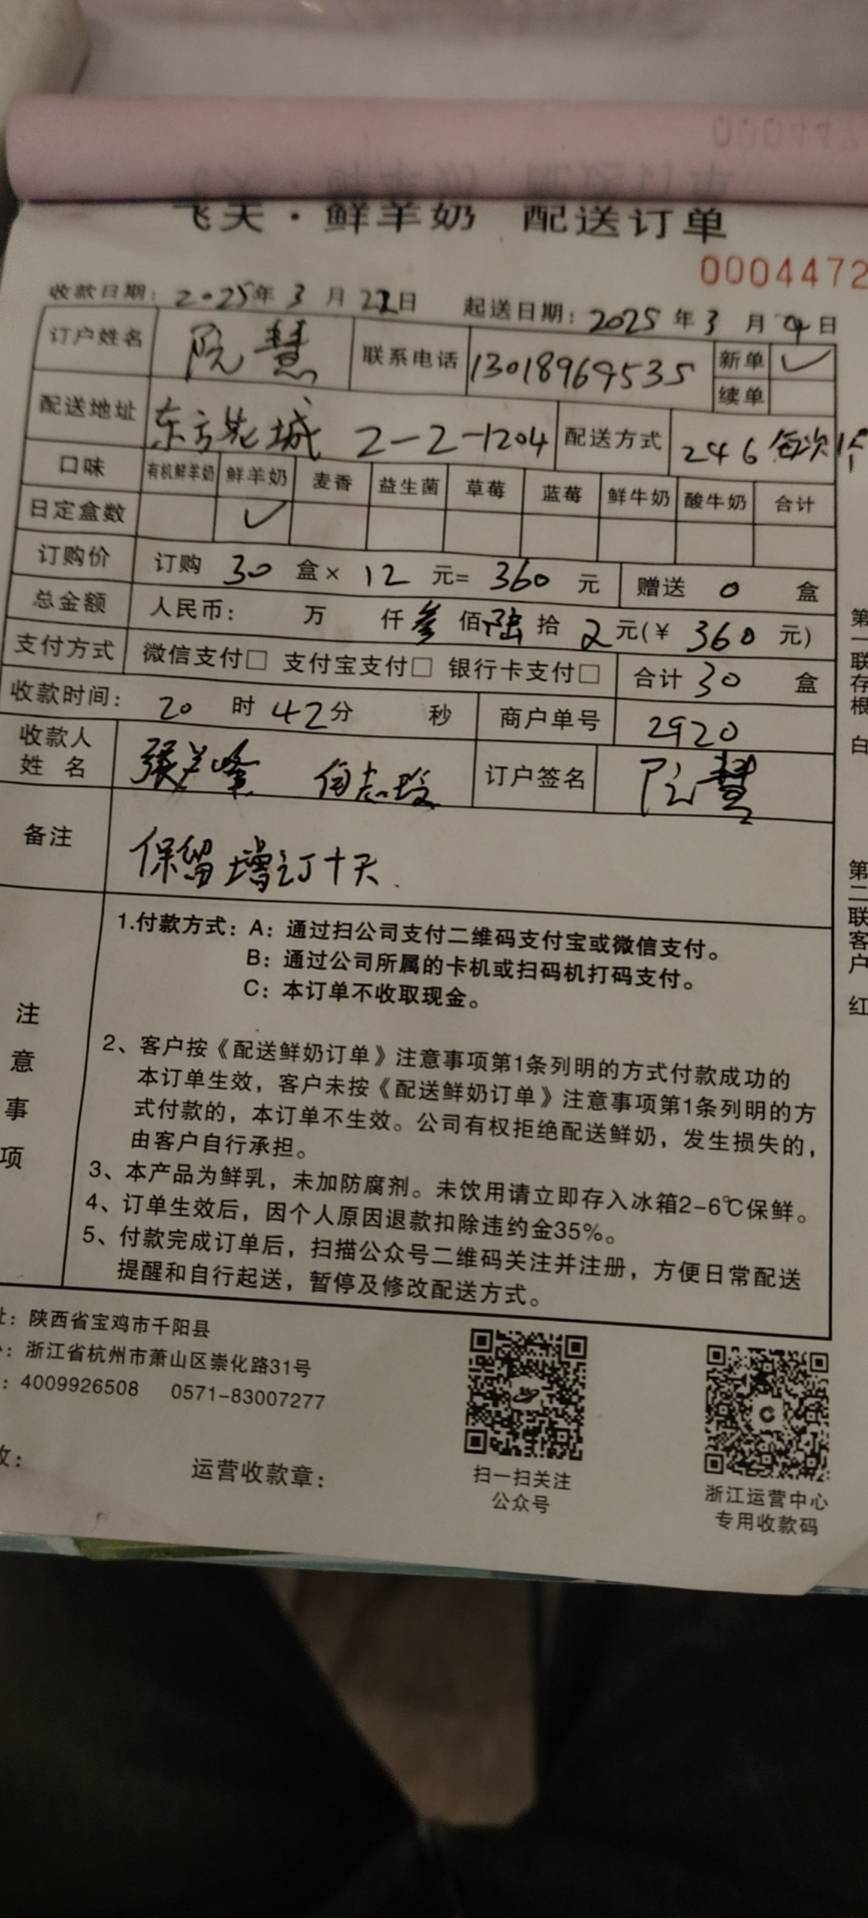 飞天·鲜羊奶 配送订单
0004472
收款日期：2025年3月21日 起送日期：2025年3月 日
订户姓名 阮慧 联系电话 13018969535 新单 ✓
续单
配送地址 东方花城 2-2-1204 配送方式 246每次1个
口味 有机鲜羊奶 鲜羊奶 麦香 益生菌 草莓 蓝莓 鲜牛奶 酸牛奶 合计
日定盒数 ✓
订购价 订购 30 盒× 12 元= 360 元 赠送 0 盒
总金额 人民币： 万 仟叁佰陆拾 元(￥ 360 元)
支付方式 微信支付□ 支付宝支付□ 银行卡支付□ 合计 30 盒
收款时间： 20 时 42分 秒 商户单号 2920
收款人
姓 名 订户签名 阮慧
备注 保留增订十天.
注意事项
1.付款方式：A：通过扫公司支付二维码支付宝或微信支付。
B：通过公司所属的卡机或扫码机打码支付。
C：本订单不收取现金。
2、客户按《配送鲜奶订单》注意事项第1条列明的方式付款成功的
本订单生效，客户未按《配送鲜奶订单》注意事项第1条列明的方
式付款的，本订单不生效。公司有权拒绝配送鲜奶，发生损失的，
由客户自行承担。
3、本产品为鲜乳，未加防腐剂。未饮用请立即存入冰箱2-6℃保鲜。
4、订单生效后，因个人原因退款扣除违约金35%。
5、付款完成订单后，扫描公众号二维码关注并注册，方便日常配送
提醒和自行起送，暂停及修改配送方式。
第一联存根 白
第二联客户 红
址：陕西省宝鸡市千阳县
：浙江省杭州市萧山区崇化路31号
：4009926508 0571-83007277
运营收款章：
扫一扫关注
公众号
浙江运营中心
专用收款码